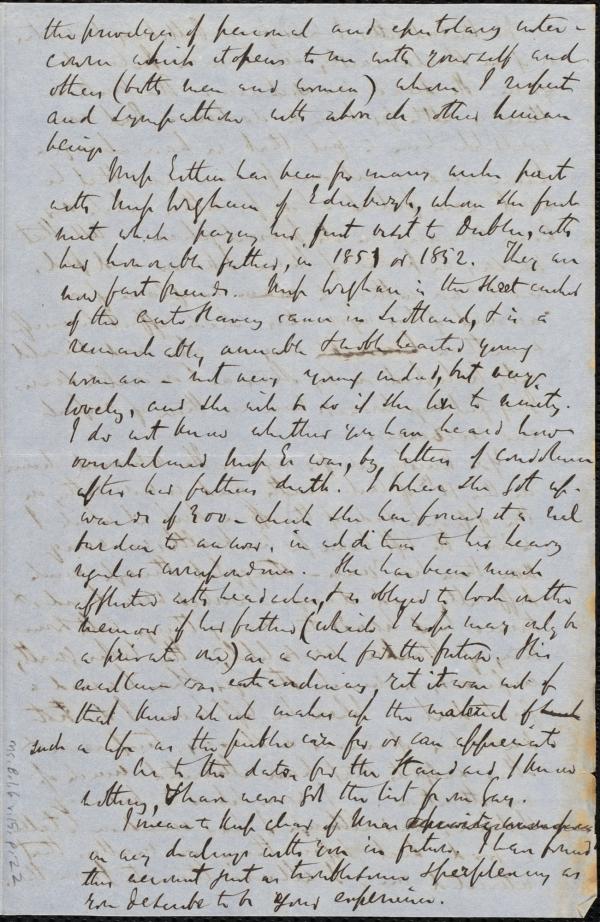 the privileges of personal and epistolary inter-
course which it opens to me with yourself and
others (both men and women) whom I respect
and sympathise with above all other human
beings.
Miss Estlin has been for many weeks past
with Miss Wigham of Edinburgh, whom she first
met while paying her first visit to Dublin, with
her honorable father, in 1851 or 1852. They are
now fast friends. Miss Wigham is the sheet anchor
of the Anti Slavery cause in Scotland, & is a
remarkably amiable & noble hearted young
woman - not very young indeed, but very
lovely, and she will be so if she live to ninety.
I do not know whether you have heard how
overwhelmed Miss E. was, by letters of condolence
after her fathers death. I believe she got up-
wards of 300 - which she has found it a real
burden to answer, in addition to her heavy
regular correspondence. She has been much
afflicted with headaches, & is obliged to look on the
memoir of her father (which I hope may only be
a private one) as a work for the future. His
excellence was extraordinary, yet it was not of
that kind which makes up the material of such
such a life as the public care for or can appreciate
As to the dates for the Standard I know
nothing, & have never got the list from Gay.
I mean to keep clear of
in any dealings with you in future. I have found
this account just as troublesome & perplexing as
you describe to be your experience.
Ms. B. 1.6 v. 15, p. 22